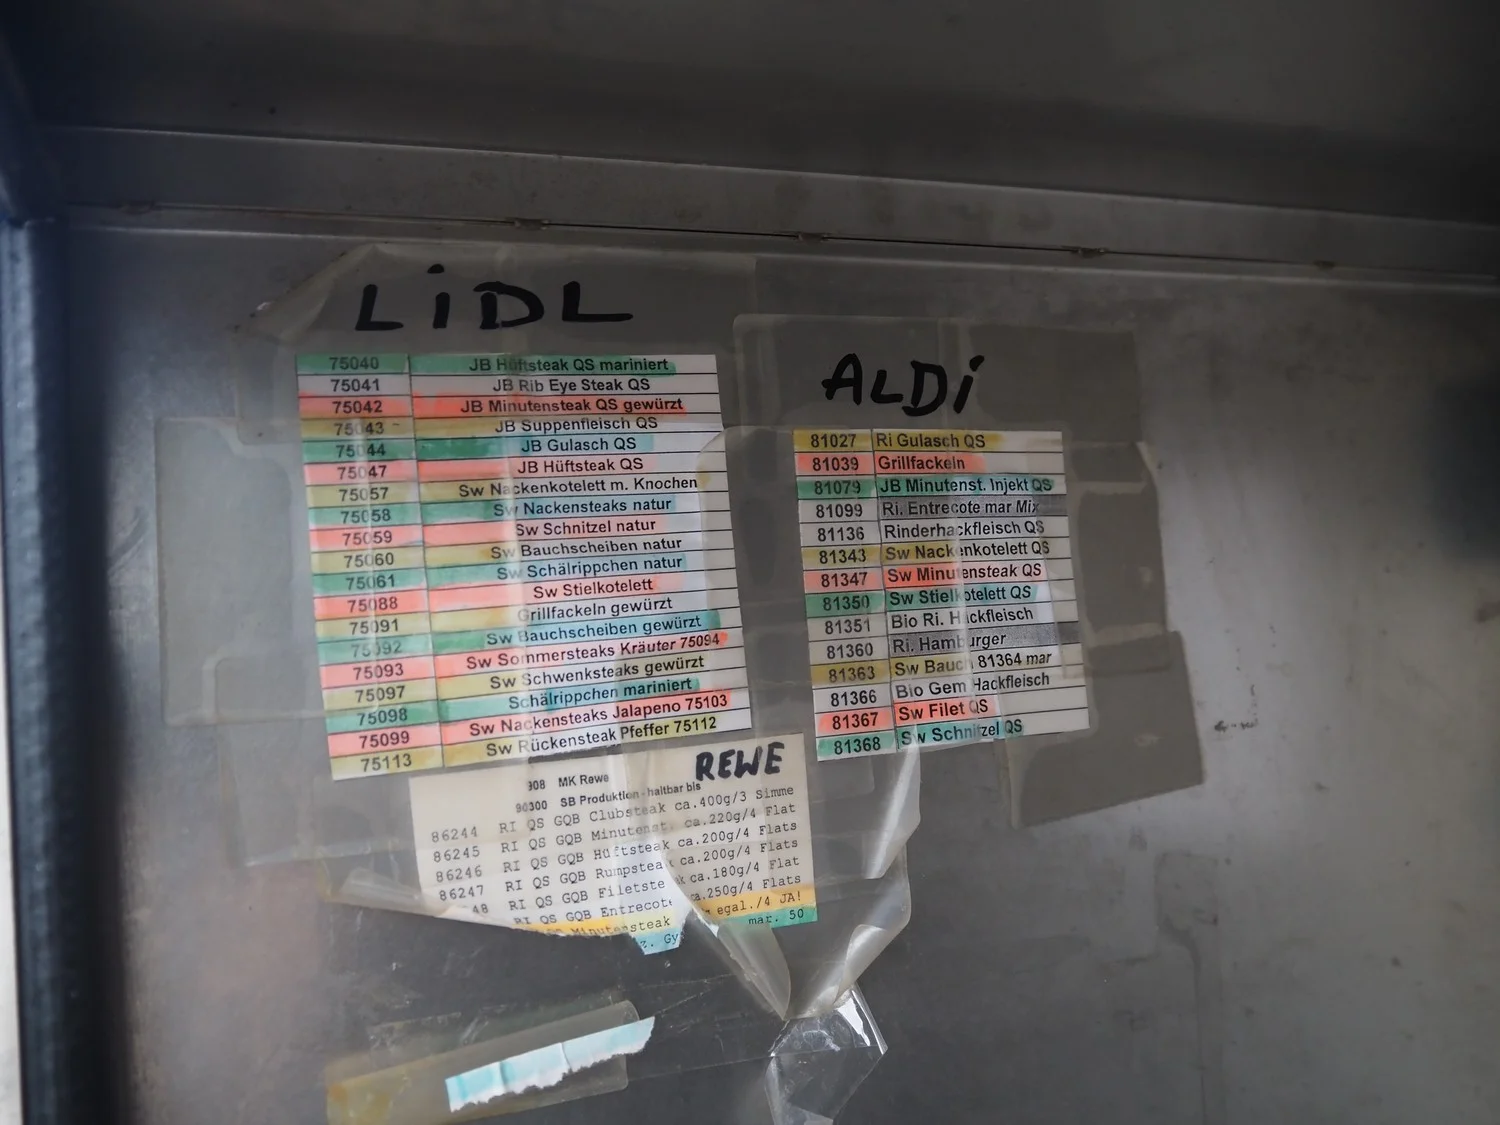 LiDL
75040 JB Hüftsteak QS mariniert
75041 JB Rib Eye Steak QS
75042 JB Minutensteak QS gewürzt
75043 JB Suppenfleisch QS
75044 JB Gulasch QS
75047 JB Hüftsteak QS
75057 Sw Nackenkotelett m. Knochen
75058 Sw Nackensteaks natur
75059 Sw Schnitzel natur
75060 Sw Bauchscheiben natur
75061 Sw Schälrippchen natur
75088 Sw Stielkotelett
75091 Grillfackeln gewürzt
75092 Sw Bauchscheiben gewürzt
75093 Sw Sommersteaks Kräuter 75094
75097 Sw Schwenksteaks gewürzt
75098 Schälrippchen mariniert
75099 Sw Nackensteaks Jalapeno 75103
75113 Sw Rückensteak Pfeffer 75112
ALDi
81027 Ri Gulasch QS
81039 Grillfackeln
81079 JB Minutenst. Injekt QS
81099 Ri. Entrecote mar Mix
81136 Rinderhackfleisch QS
81343 Sw Nackenkotelett QS
81347 Sw Minutensteak QS
81350 Sw Stielkotelett QS
81351 Bio Ri. Hackfleisch
81360 Ri. Hamburger
81363 Sw Bauch 81364 mar
81366 Bio Gem Hackfleisch
81367 Sw Filet QS
81368 Sw Schnitzel QS
REWE
908 MK Rewe
90300 SB Produktion - haltbar bis
86244 RI QS GQB Clubsteak ca.400g/3 Simme
86245 RI QS GQB Minutenst. ca.220g/4 Flat
86246 RI QS GQB Hüftsteak ca.200g/4 Flats
86247 RI QS GQB Rumpsteak ca.200g/4 Flats
48 RI QS GQB Filetste k ca.180g/4 Flat
RI QS GQB Entrecote ca.250g/4 Flats
Minutensteak egal./4 JA!
z. Gy mar. 50